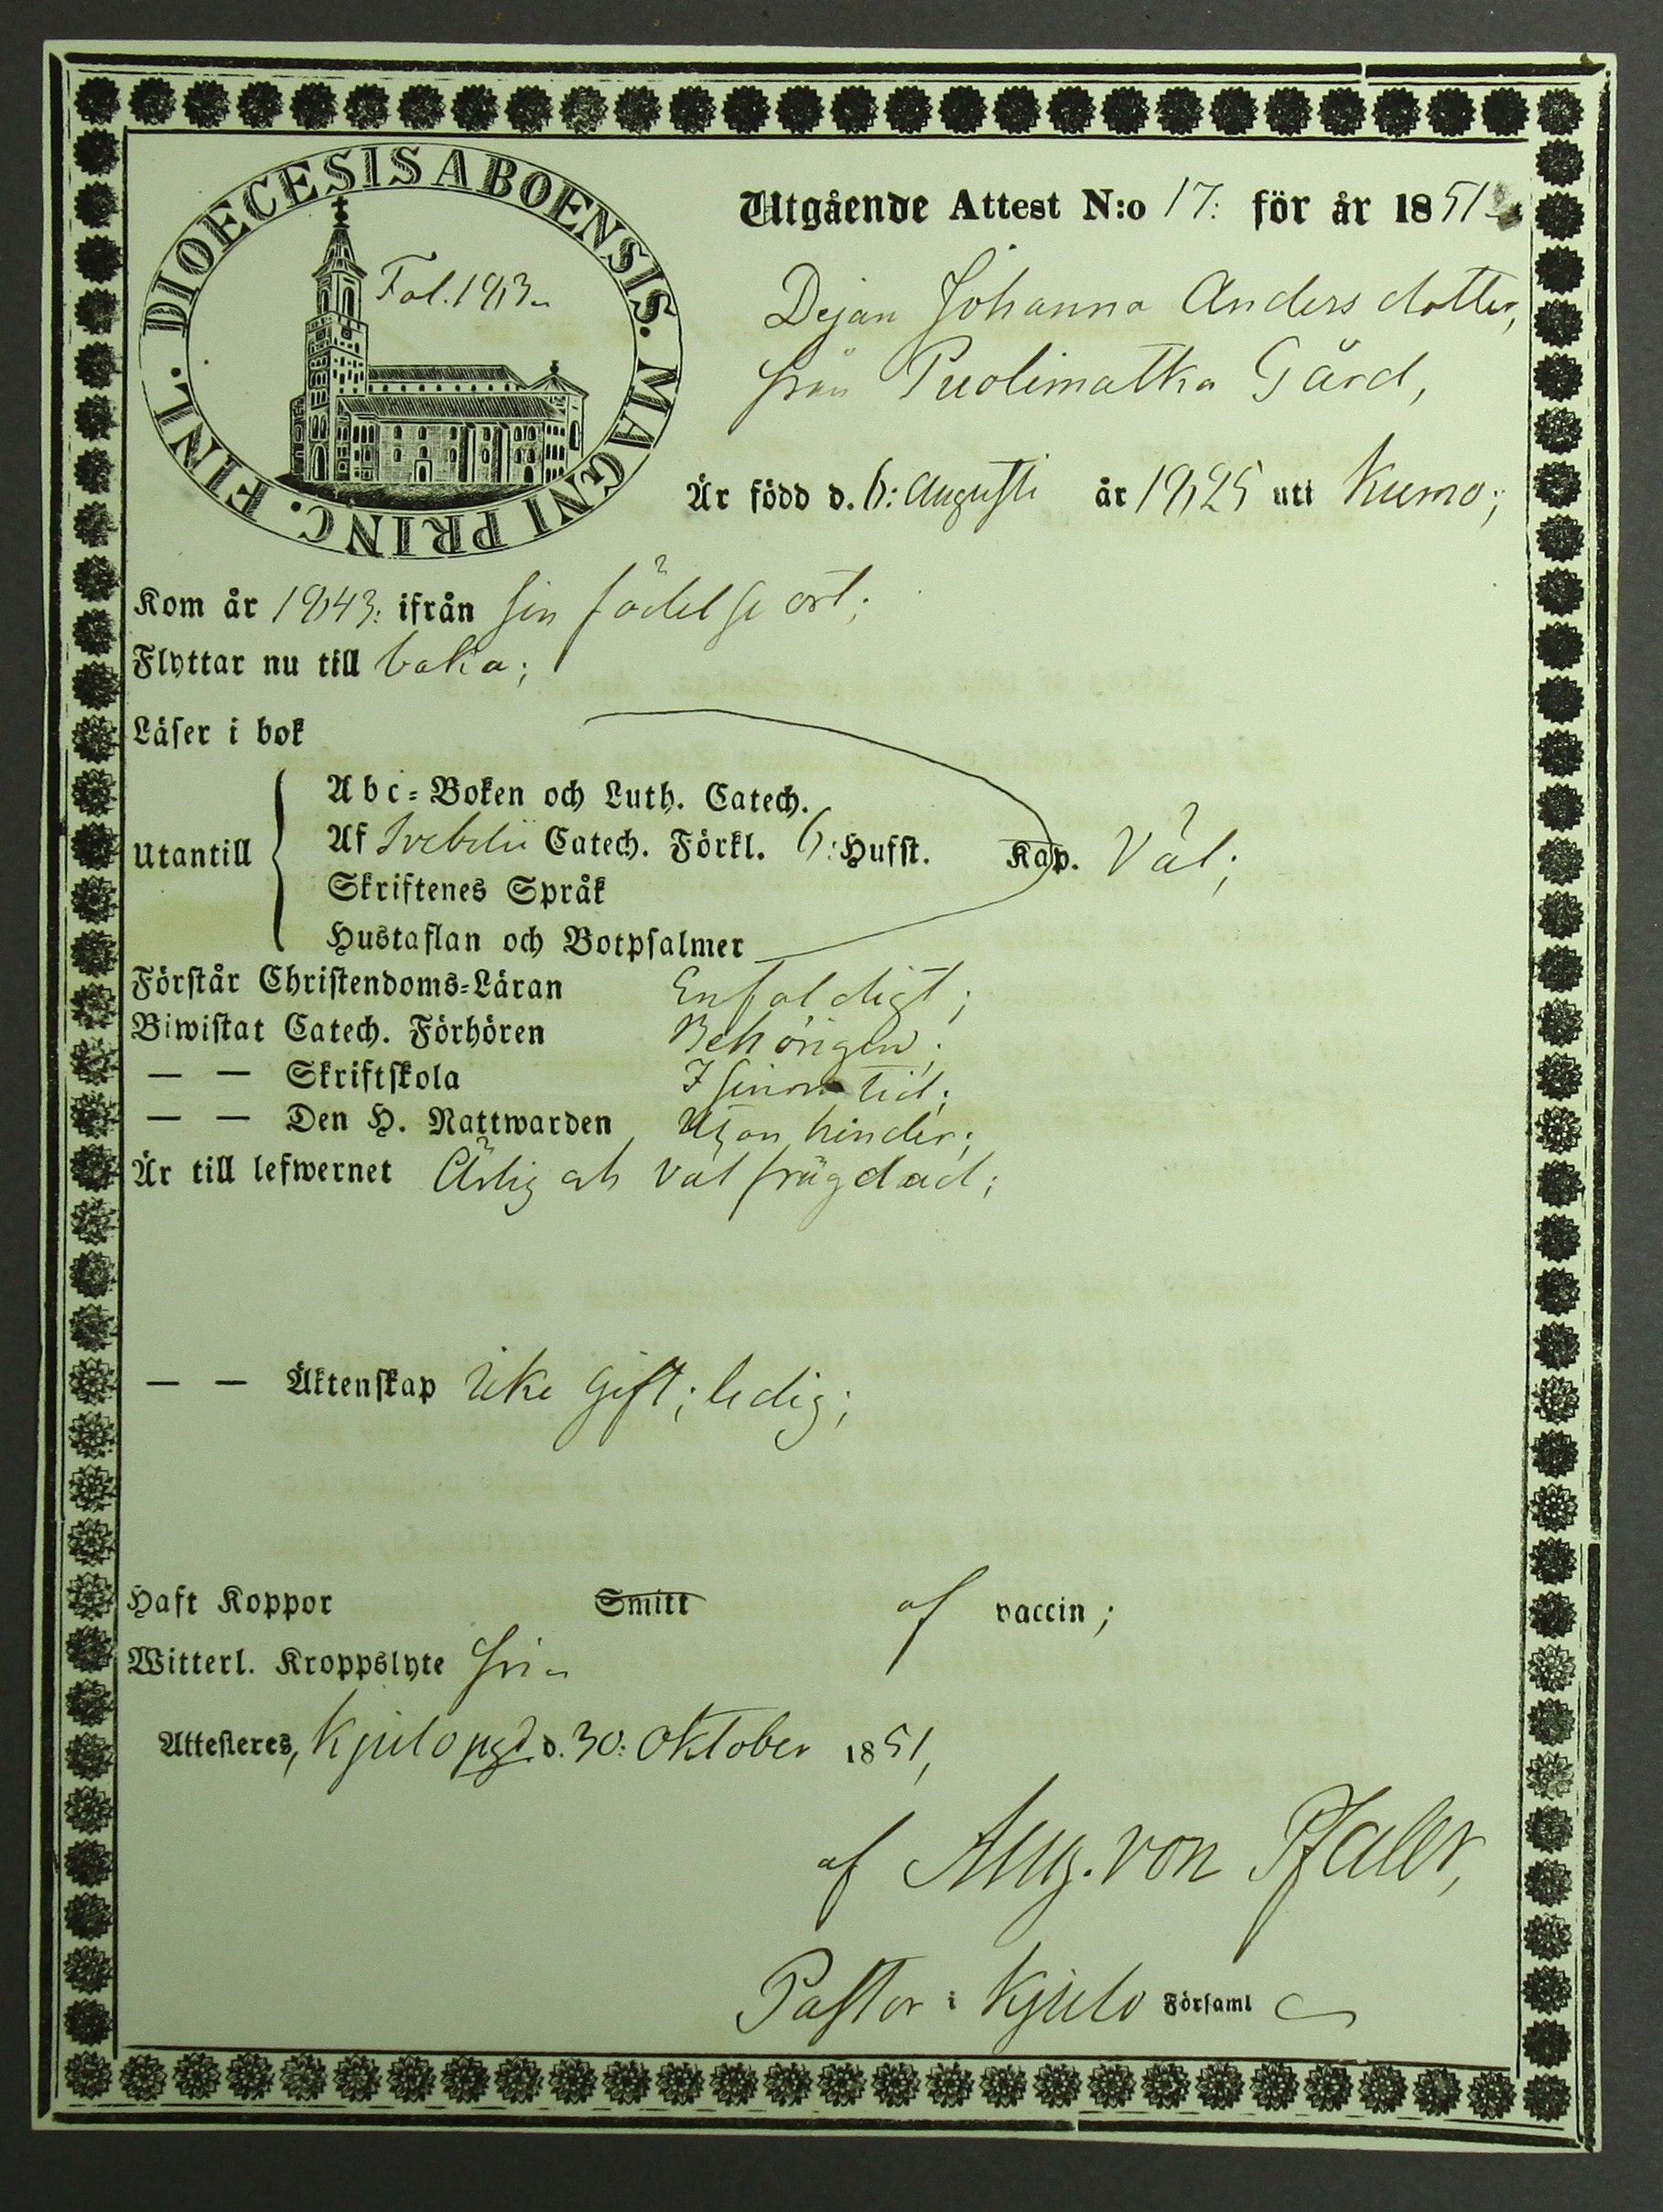 DIOECESIS ABOENSIS. MAGNI PRINC. FINL.
Fol. 183
Utgående Attest N:o 17: för år 1851
Dejan Johanna Anders dotter,
från Puolimatka Gård,
Är född d. 6: Augusti år 1825 uti Kumo;
Kom år 1843: ifrån sin födelse ort;
Flyttar nu till baka;
Läser i bok
Utantill
Abc-Boken och Luth. Catech.
Af Svebelii Catech. Förkl. 6: Hufst. Kap. Väl;
Skriftenes Språk
Hustaflan och Botpsalmer
Förstår Christendoms-Läran Enfaldigt;
Biwistat Catech. Förhören Behörigen;
— — Skriftskola I sinom tid;
— — Den H. Nattwarden Utan hinder;
Är till lefwernet Ärlig och väl frägdad;
— — Äktenskap icke gift; ledig;
Haft Koppor Smitt af vaccin;
Witterl. Kroppslyte fri
Attesteres, Kjulo pgd d. 30: Oktober 1851,
af Aug. von Pfaler,
Pastor i Kjulo Församl